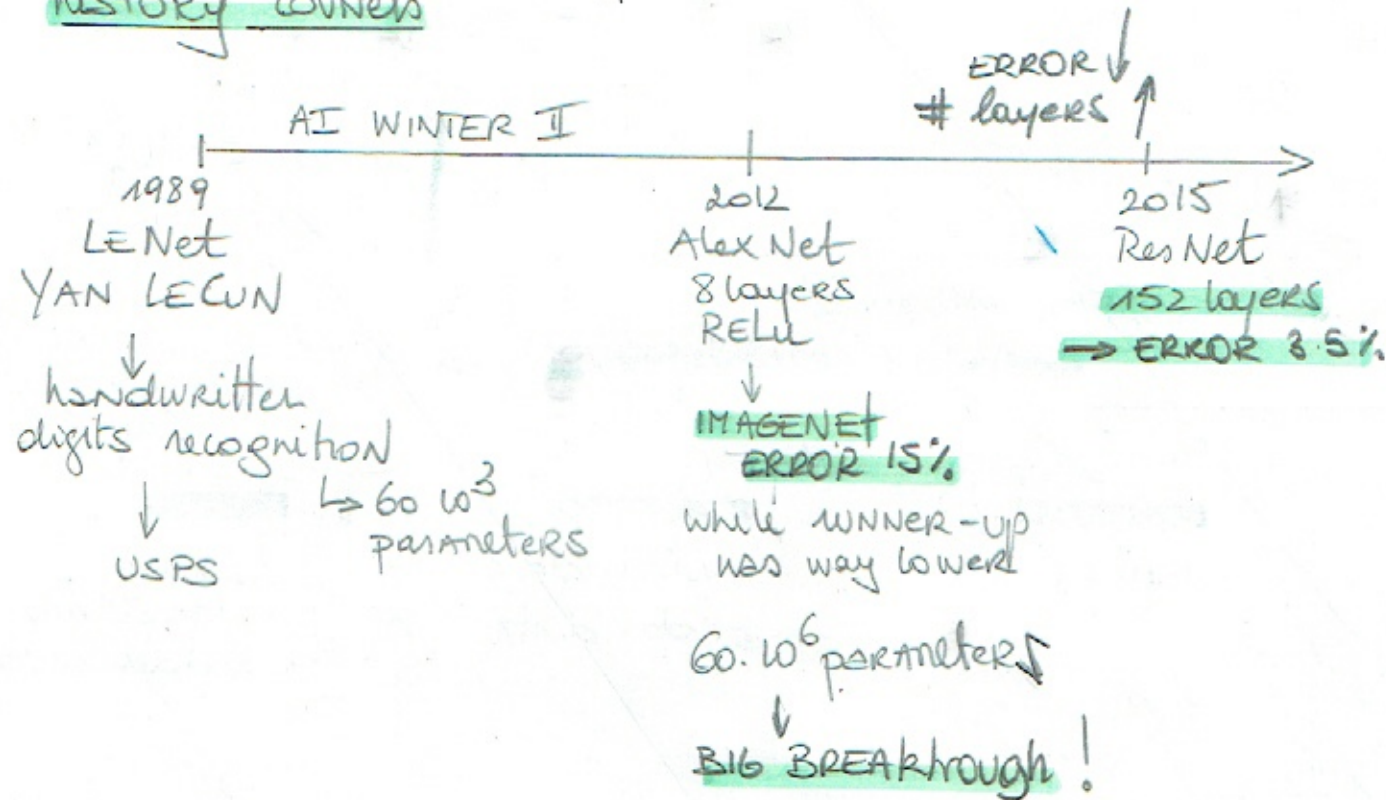 HISTORY CONVNETS
ERROR ↓
# layers ↑
AI WINTER II
1989
LENet
YAN LECUN
↓
handwritten
digits recognition
↳ 60 10³
parameters
↓
USPS
2012
Alex Net
8 layers
RELU
↓
IMAGENEt
ERROR 15%
while RUNNER-UP
was way lower
60.10⁶ parameters
↓
BIG BREAkthrough !
2015
ResNet
152 layers
→ ERROR 3.5%